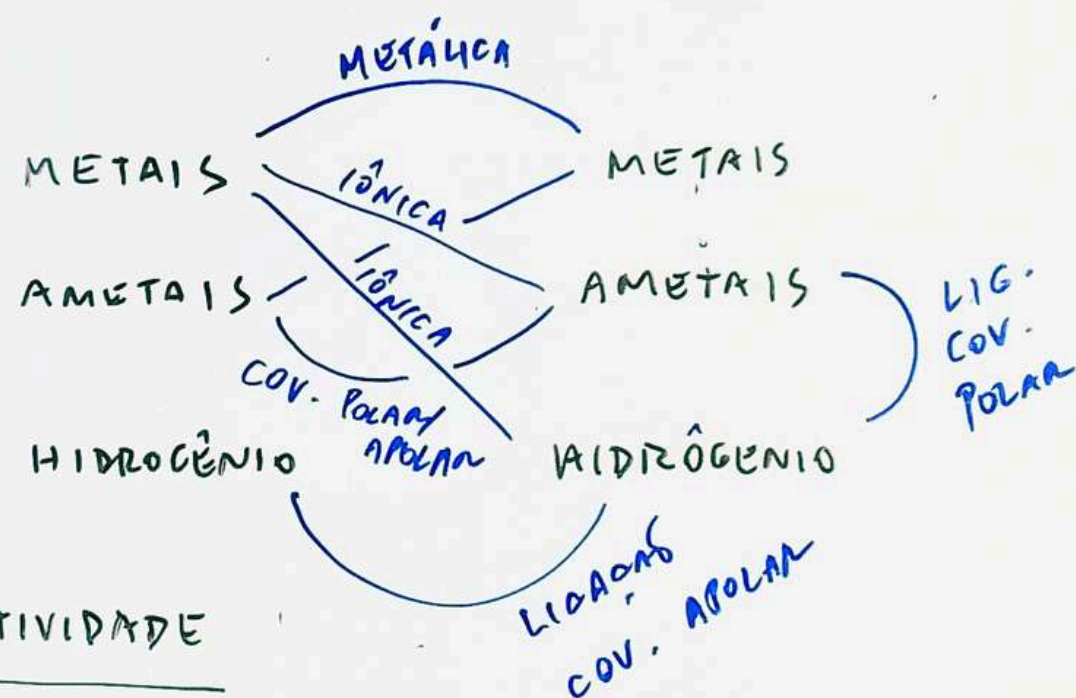 METÁLICA
METAIS
IÔNICA
METAIS
AMETAIS
IÔNICA
AMETAIS
LIG.
COV.
POLAR
COV. POLAR/
APOLAR
HIDROGÊNIO
HIDRÔGENIO
LIGAÇÃO
COV. APOLAR
TIVIDADE